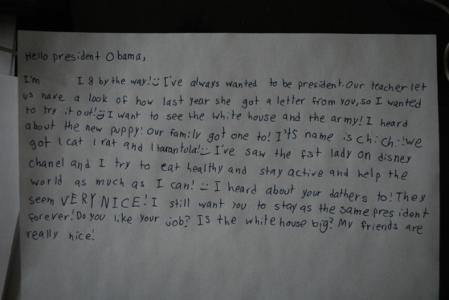 Hello president Obama,
I'm I 8 by the way! I've always wanted to be president. Our teacher let
us have a look of how last year she got a letter from you, so I wanted
to try it oot! I want to see the white house and the army! I heard
about the new puppy! Our family got one to! It's name is Chichi! we
got 1 cat 1 rat and 1 tarantula! I've saw the f3t lady on disney
chanel and I try to eat healthy and stay active and help the
world as much as I can! I heard about your dathers to! They
seem VERY NICE! I still want you to stay as the same president
forever! Do you like your job? Is the white house big? My friends are
really nice!